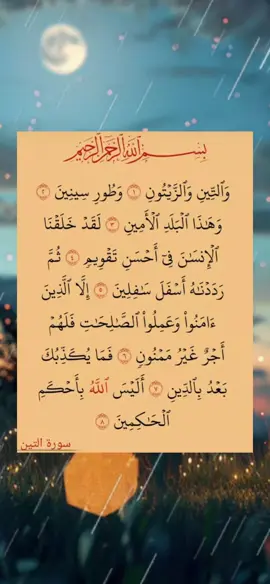 بِسْمِ ٱللَّهِ ٱلرَّحْمَٰنِ ٱلرَّحِيمِ
وَٱلتِّينِ وَٱلزَّيْتُونِ ١ وَطُورِ سِينِينَ ٢
وَهَٰذَا ٱلْبَلَدِ ٱلْأَمِينِ ٣ لَقَدْ خَلَقْنَا
ٱلْإِنسَٰنَ فِىٓ أَحْسَنِ تَقْوِيمٍ ٤ ثُمَّ
رَدَدْنَٰهُ أَسْفَلَ سَٰفِلِينَ ٥ إِلَّا ٱلَّذِينَ
ءَامَنُوا۟ وَعَمِلُوا۟ ٱلصَّٰلِحَٰتِ فَلَهُمْ
أَجْرٌ غَيْرُ مَمْنُونٍ ٦ فَمَا يُكَذِّبُكَ
بَعْدُ بِٱلدِّينِ ٧ أَلَيْسَ ٱللَّهُ بِأَحْكَمِ
ٱلْحَٰكِمِينَ ٨
سورة التين